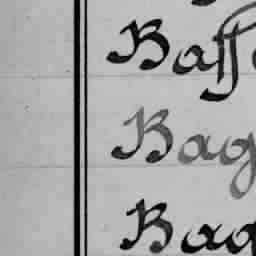 Baff
Bag
Bag